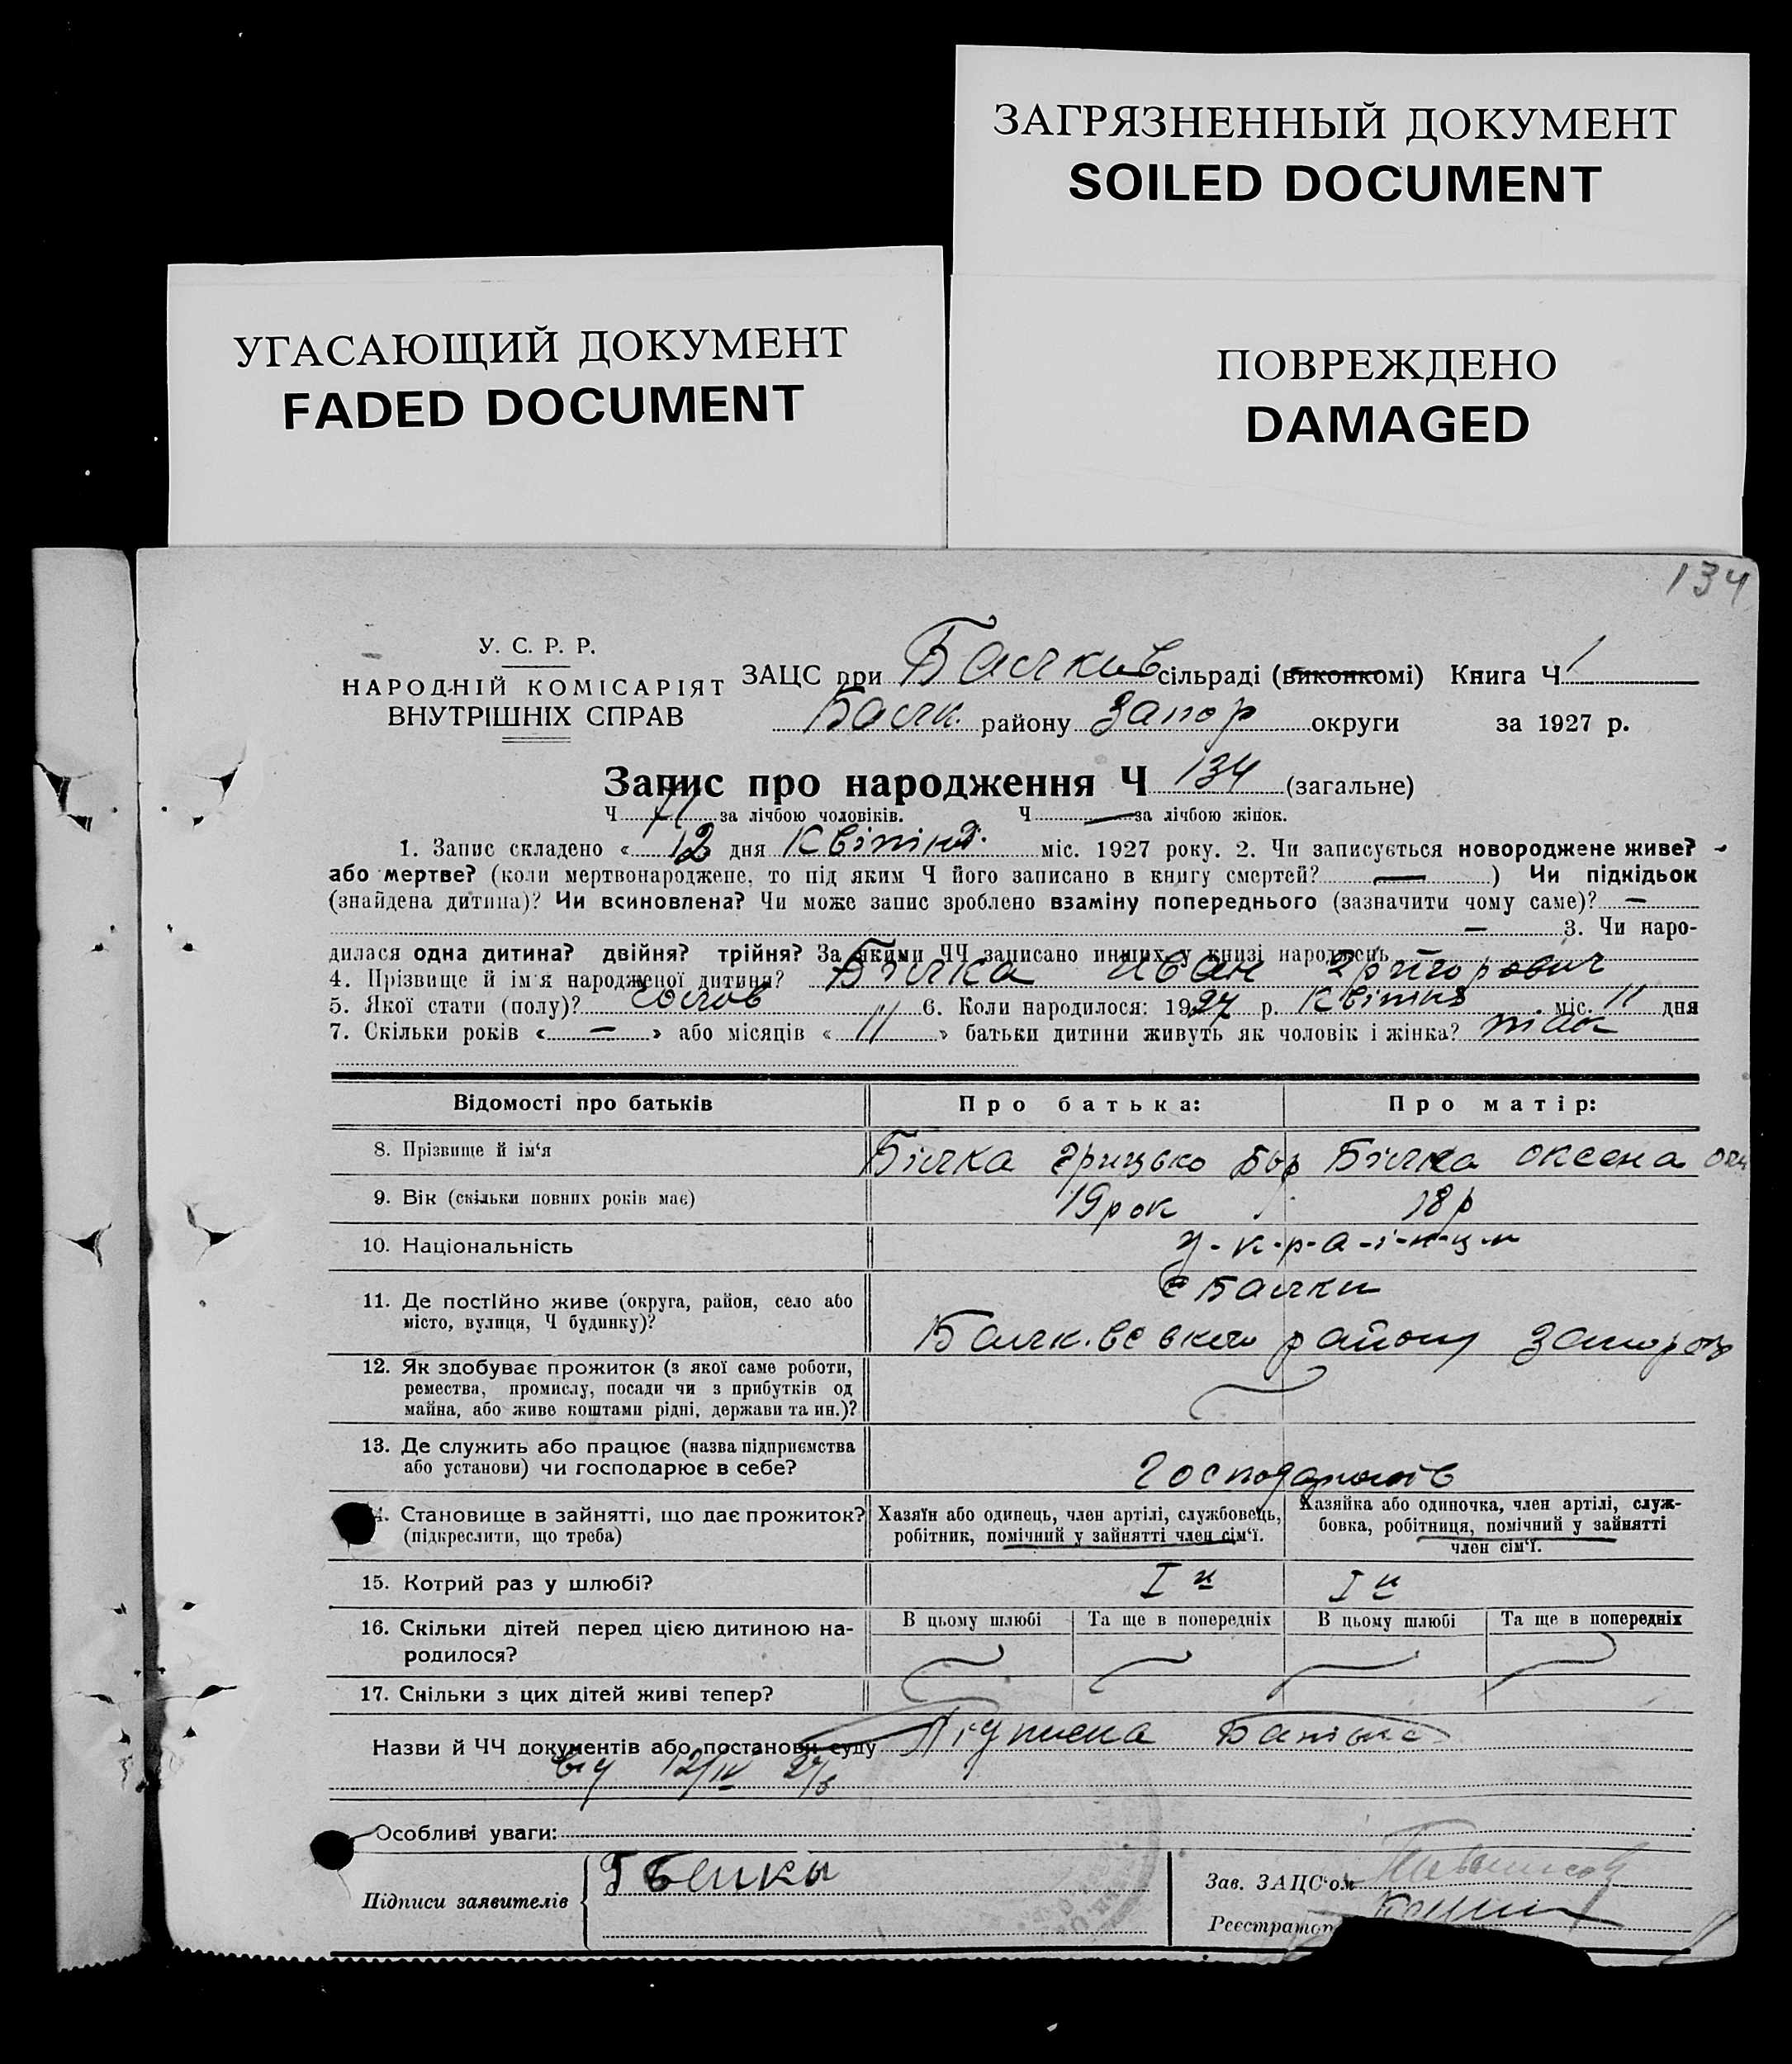 ЗАГРЯЗНЕННЫЙ ДОКУМЕНТ
SOILED DOCUMENT
УГАСАЮЩИЙ ДОКУМЕНТ
FADED DOCUMENT
ПОВРЕЖДЕНО
DAMAGED
134
У. С. Р. Р.
НАРОДНІЙ КОМІСАРІЯТ
ВНУТРІШНІХ СПРАВ
ЗАЦС при Балків сільраді (виконкомі) Книга Ч 1
Балк. району Запор округи за 1927 р.
Запис про народження Ч 134 (загальне)
Ч 71 за лічбою чоловіків. Ч — за лічбою жінок.
1. Запис складено « 12 дня Квітня міс. 1927 року. 2. Чи записується новороджене живе? -
або мертве? (коли мертвонароджене, то під яким Ч його записано в книгу смертей? — ) Чи підкідьок
(знайдена дитина)? Чи всиновлена? Чи може запис зроблено взаміну попереднього (зазначити чому саме)? —
— 3. Чи наро-
дилася одна дитина? двійня? трійня? За якими ЧЧ записано инших у книзі народжень
4. Прізвище й ім'я народженої дитини? Білка Иван Григорович
5. Якої стати (полу)? чолов 6. Коли народилося: 1927 р. Квітня міс. 11 дня
7. Скільки років « — » або місяців « 11 » батьки дитини живуть як чоловік і жінка? так
Відомості про батьків Про батька: Про матір:
8. Прізвище й ім'я Білка Грицько Білка Оксена
9. Вік (скільки повних років має) 19 рок 18 р
10. Національність у-к-р-а-ї-н-ц-и
11. Де постійно живе (округа, район, село або
місто, вулиця, Ч будинку)?
с Балки
Балк.вського району Запороз
12. Як здобуває прожиток (з якої саме роботи,
ремества, промислу, посади чи з прибутків од
майна, або живе коштами рідні, держави та ин.)?
13. Де служить або працює (назва підприємства
або установи) чи господарює в себе?
14. Становище в зайнятті, що дає прожиток?
(підкреслити, що треба)
Хазяїн або одинець, член артілі, службовець,
робітник, помічний у зайнятті член сім'ї.
Хазяйка або одиночка, член артілі, служ-
бовка, робітниця, помічний у зайнятті
член сім'ї.
15. Котрий раз у шлюбі? I й I й
16. Скільки дітей перед цією дитиною на-
родилося?
В цьому шлюбі Та ще в попередніх В цьому шлюбі Та ще в попередніх
17. Скільки з цих дітей живі тепер?
Назви й ЧЧ документів або постанови суду Підписка Батька
від 12/IV 27 р
Особливі уваги:
Підписи заявителів Г Белка
Зав. ЗАЦС'ом
Реєстратор